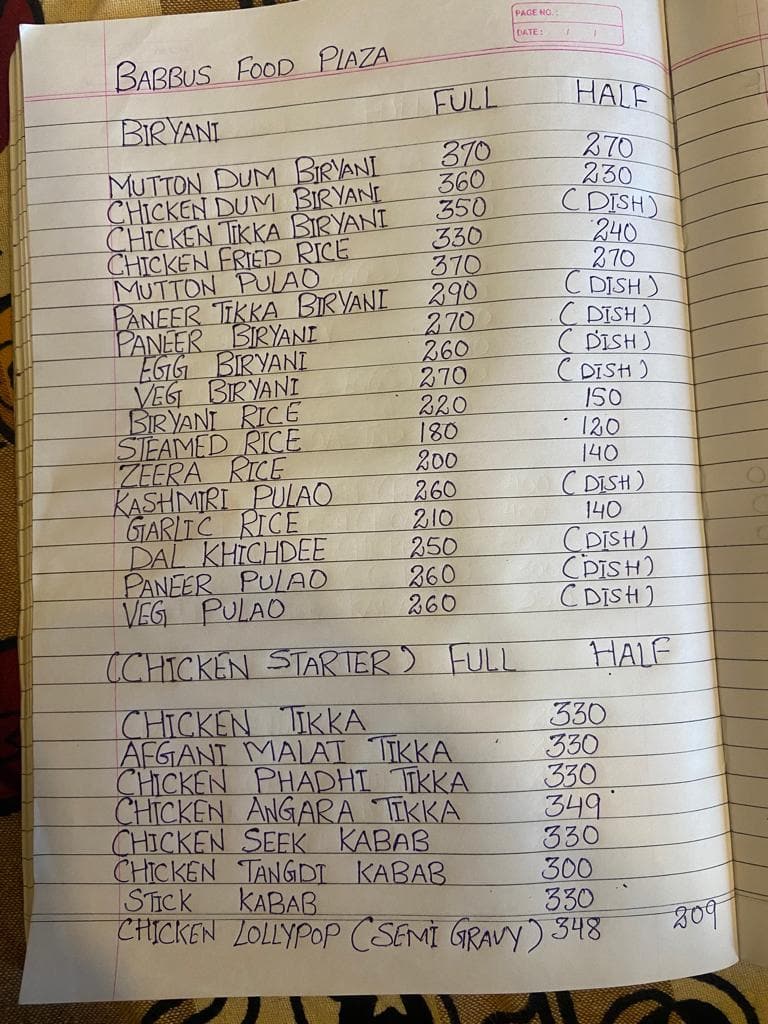 PAGE NO.:
DATE: / /
BABBUS FOOD PLAZA
FULL HALF
BIRYANI
MUTTON DUM BIRYANI 370 270
CHICKEN DUM BIRYANI 360 230
CHICKEN TIKKA BIRYANI 350 (DISH)
CHICKEN FRIED RICE 330 240
MUTTON PULAO 370 270
PANEER TIKKA BIRYANI 290 (DISH)
PANEER BIRYANI 270 (DISH)
EGG BIRYANI 260 (DISH)
VEG BIRYANI 270 (DISH)
BIRYANI RICE 220 150
STEAMED RICE 180 120
ZEERA RICE 200 140
KASHMIRI PULAO 260 (DISH)
GARLIC RICE 210 140
DAL KHICHDEE 250 (DISH)
PANEER PULAO 260 (DISH)
VEG PULAO 260 (DISH)
(CHICKEN STARTER) FULL HALF
CHICKEN TIKKA 330
AFGANI MALAI TIKKA 330
CHICKEN PHADHI TIKKA 330
CHICKEN ANGARA TIKKA 349
CHICKEN SEEK KABAB 330
CHICKEN TANGDI KABAB 300
STICK KABAB 330
CHICKEN LOLLYPOP (SEMI GRAVY) 348 209